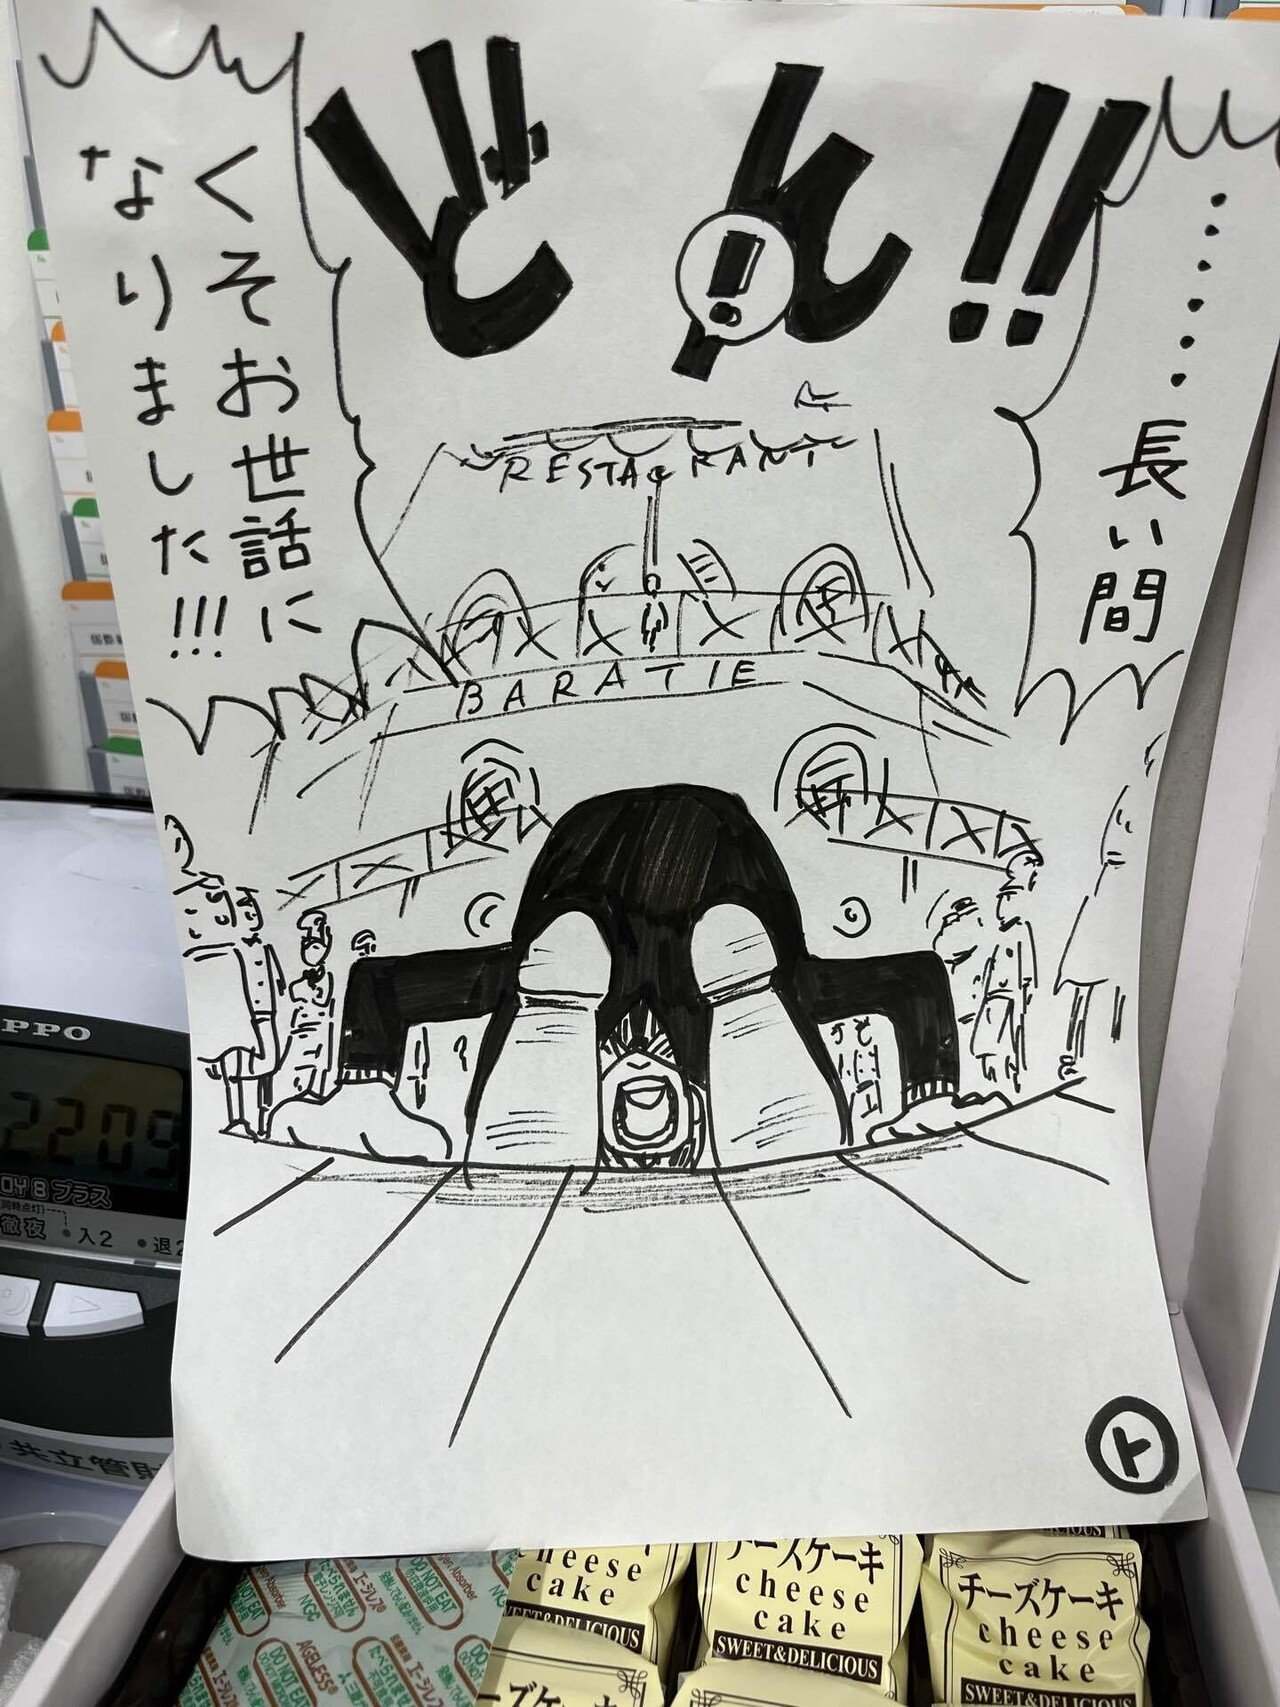 ……長い間
どん!!
くそお世話に
なりました!!!
RESTAURANT
BARATIE
ト
PPO
2209
BOY8プラス
徹夜
入2
共立管財
cheese
cake
SWEET&DELICIOUS
チーズケーキ
cheese
cake
SWEET&DELICIOUS
チーズケーキ
cheese
cake
SWEET&DELICIOUS
チーズケーキ
AGELESS
DO NOT EAT
エージレス
たべられません
MGC